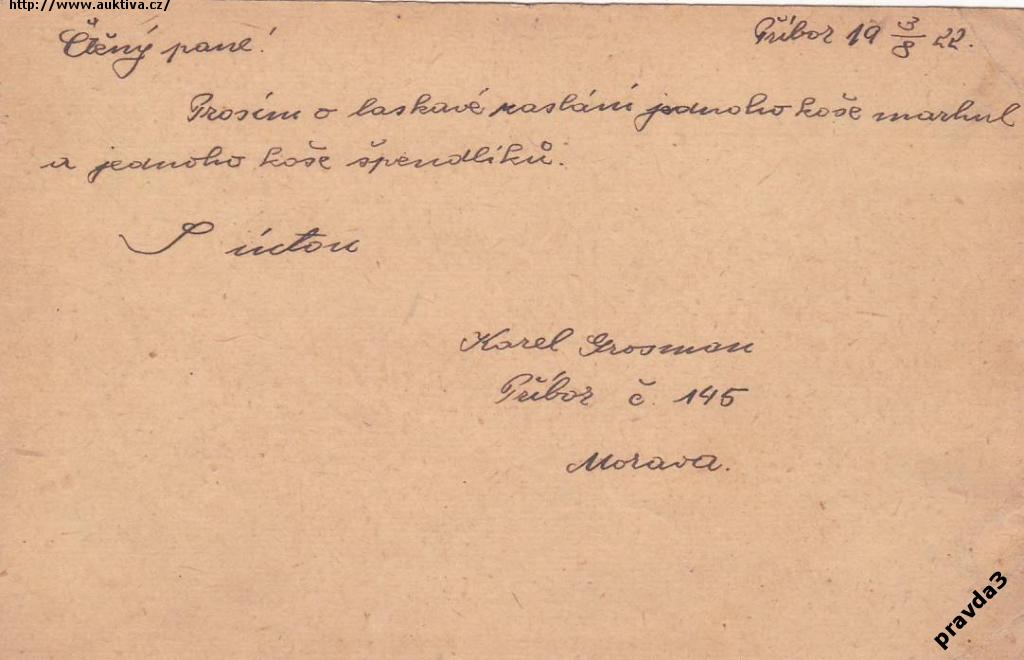 http://www.auktiva.cz/
Ctěný pane!
Příbor 19 3/8 22.
Prosím o laskavé zaslání jednoho koše marhul
a jednoho koše špendlíků.
S úctou
Karel Grosman
Příbor č. 145
Morava.
pravda3